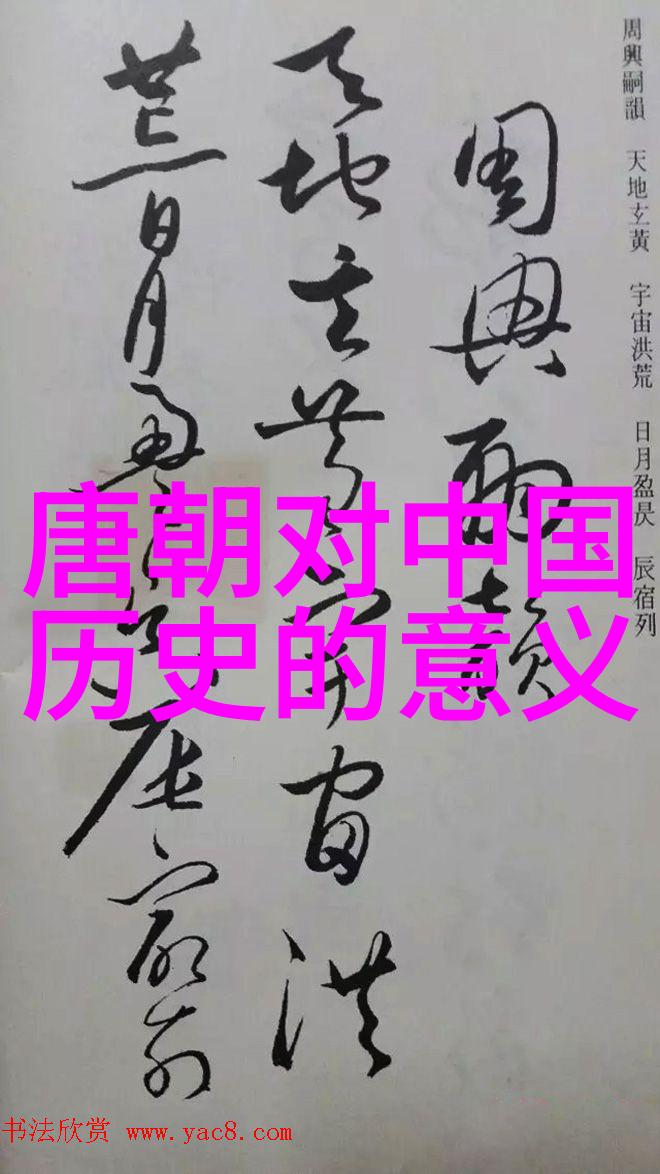 周興嗣韻 天地玄黃 宇宙洪荒 日月盈昃 辰宿列
周興嗣韻
天地玄黃宇宙洪
荒日月盈昃辰宿列
唐朝对中国
历史的意义
书法欣赏 www.yac8.com